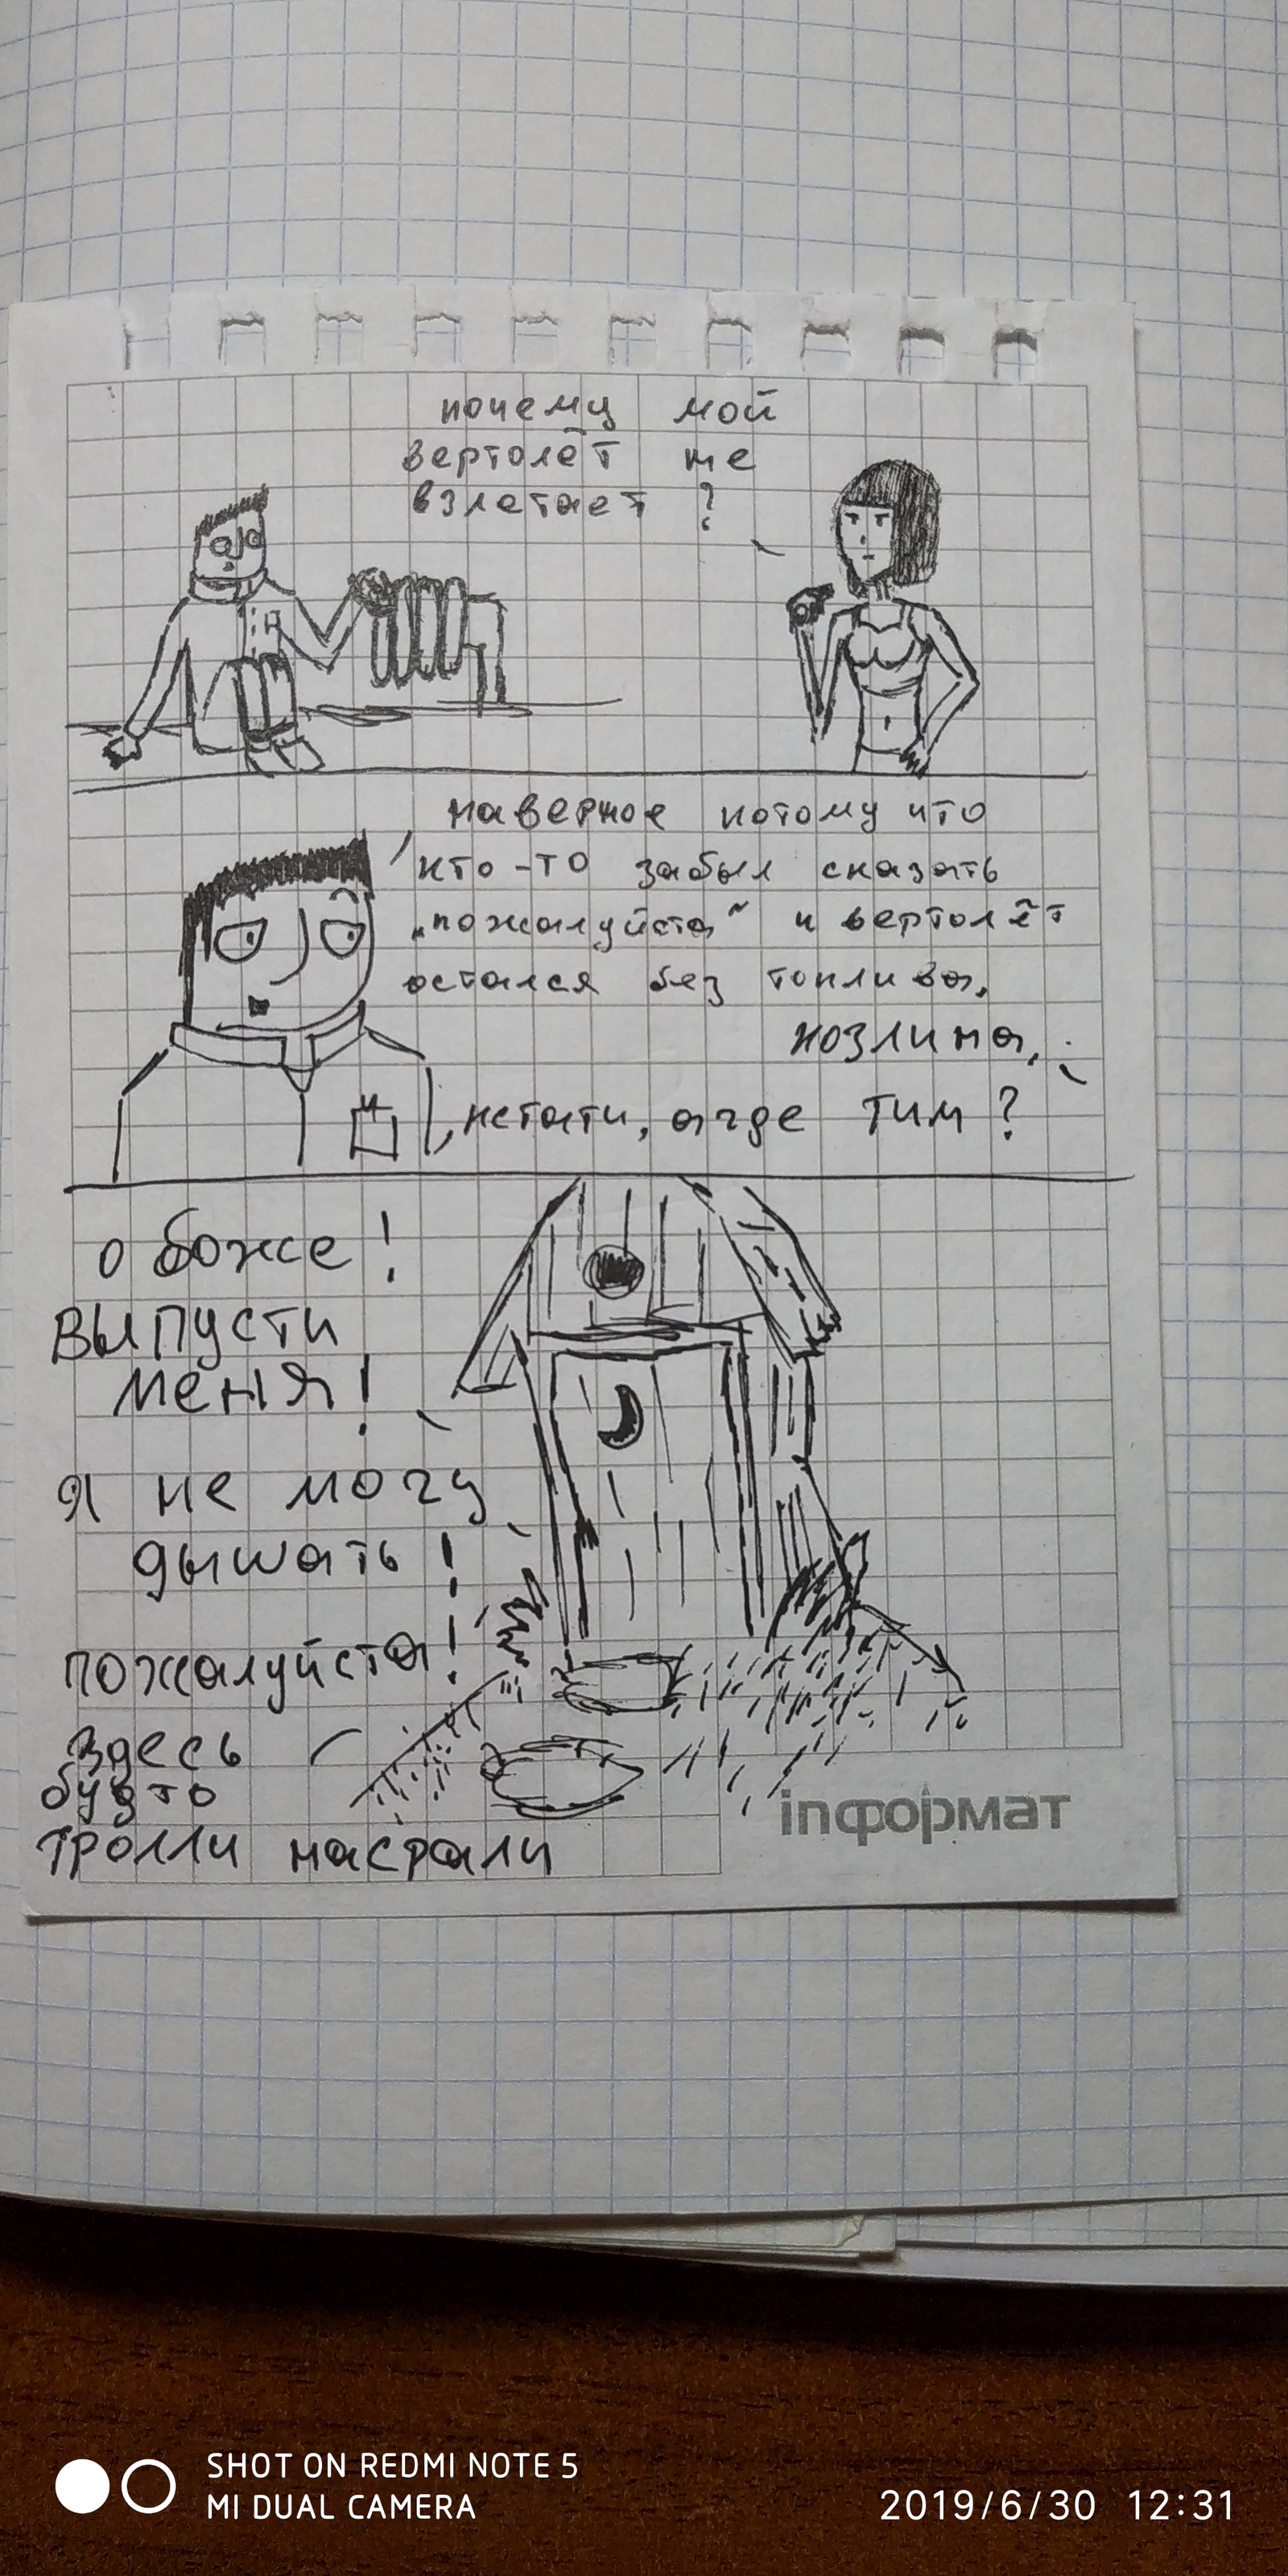 почему мой
вертолёт не
взлетает?
наверное потому что
кто-то забыл сказать
„пожалуйста" и вертолёт
остался без топлива,
козлина,
кстати, а где Тим?
о боже!
выпусти
меня!
я не могу
дышать!
пожалуйста!
здесь
будто
тролли насрали
inформат
SHOT ON REDMI NOTE 5
MI DUAL CAMERA
2019/6/30 12:31